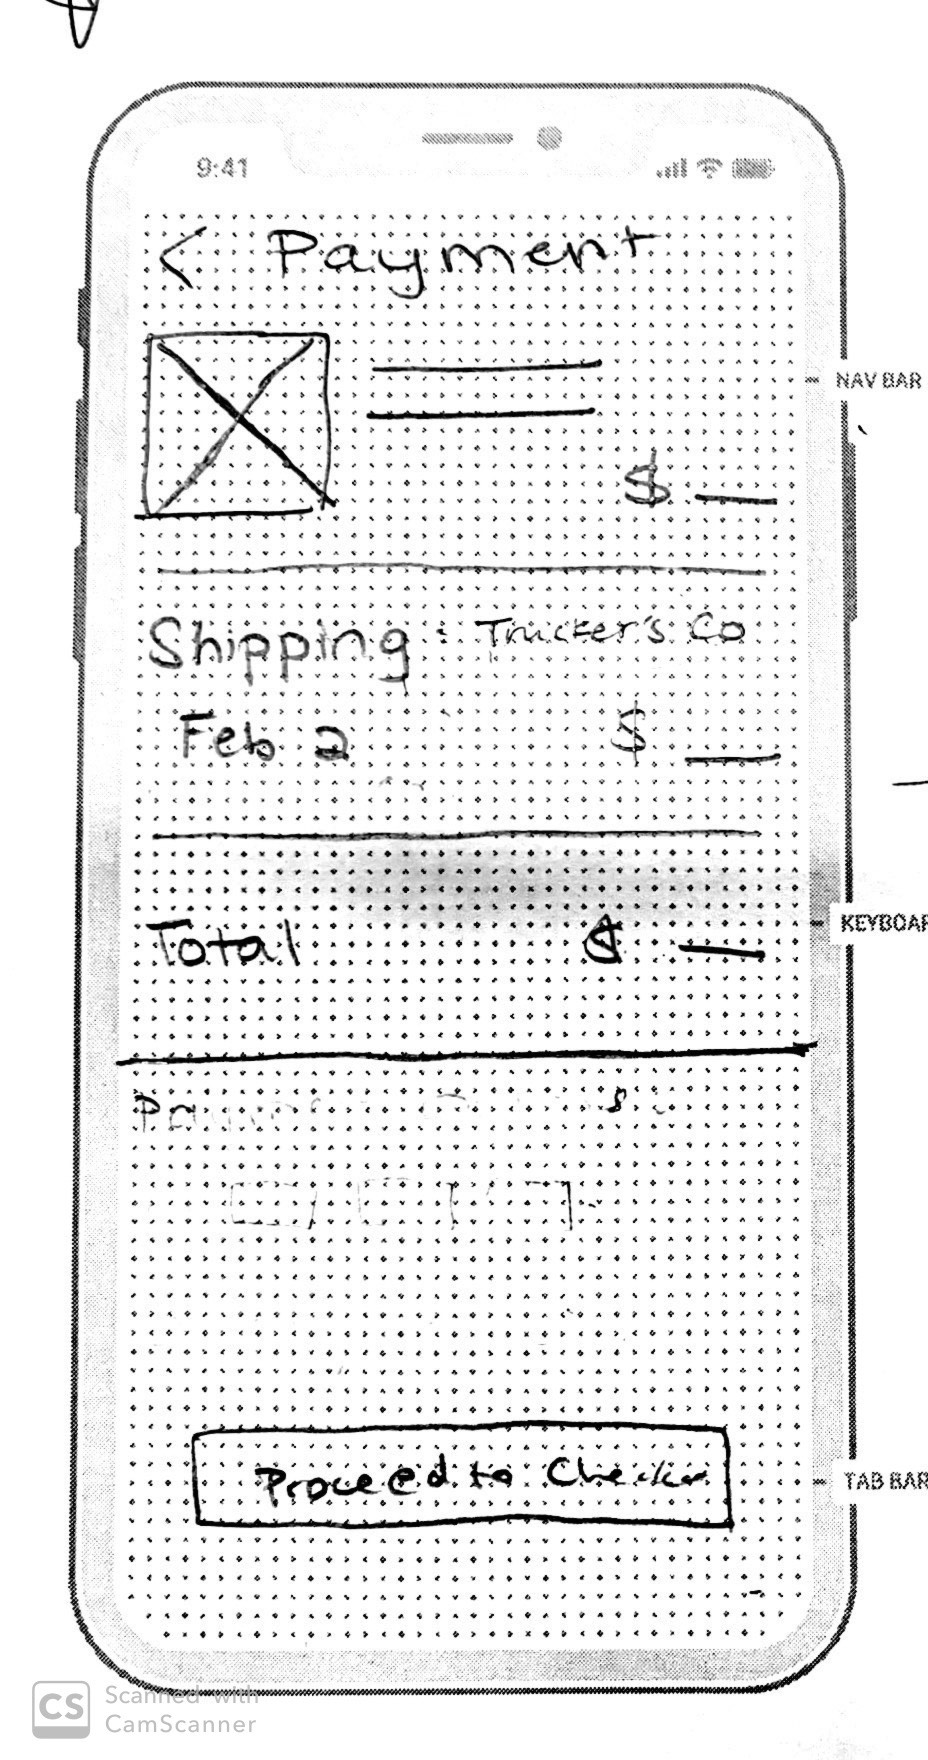 9:41
< Payment
NAV BAR
$
Shipping : Trucker's Co
Feb 2 $
KEYBOAR
Total $
Proceed to
TAB BAR
CS Scanned with
CamScanner